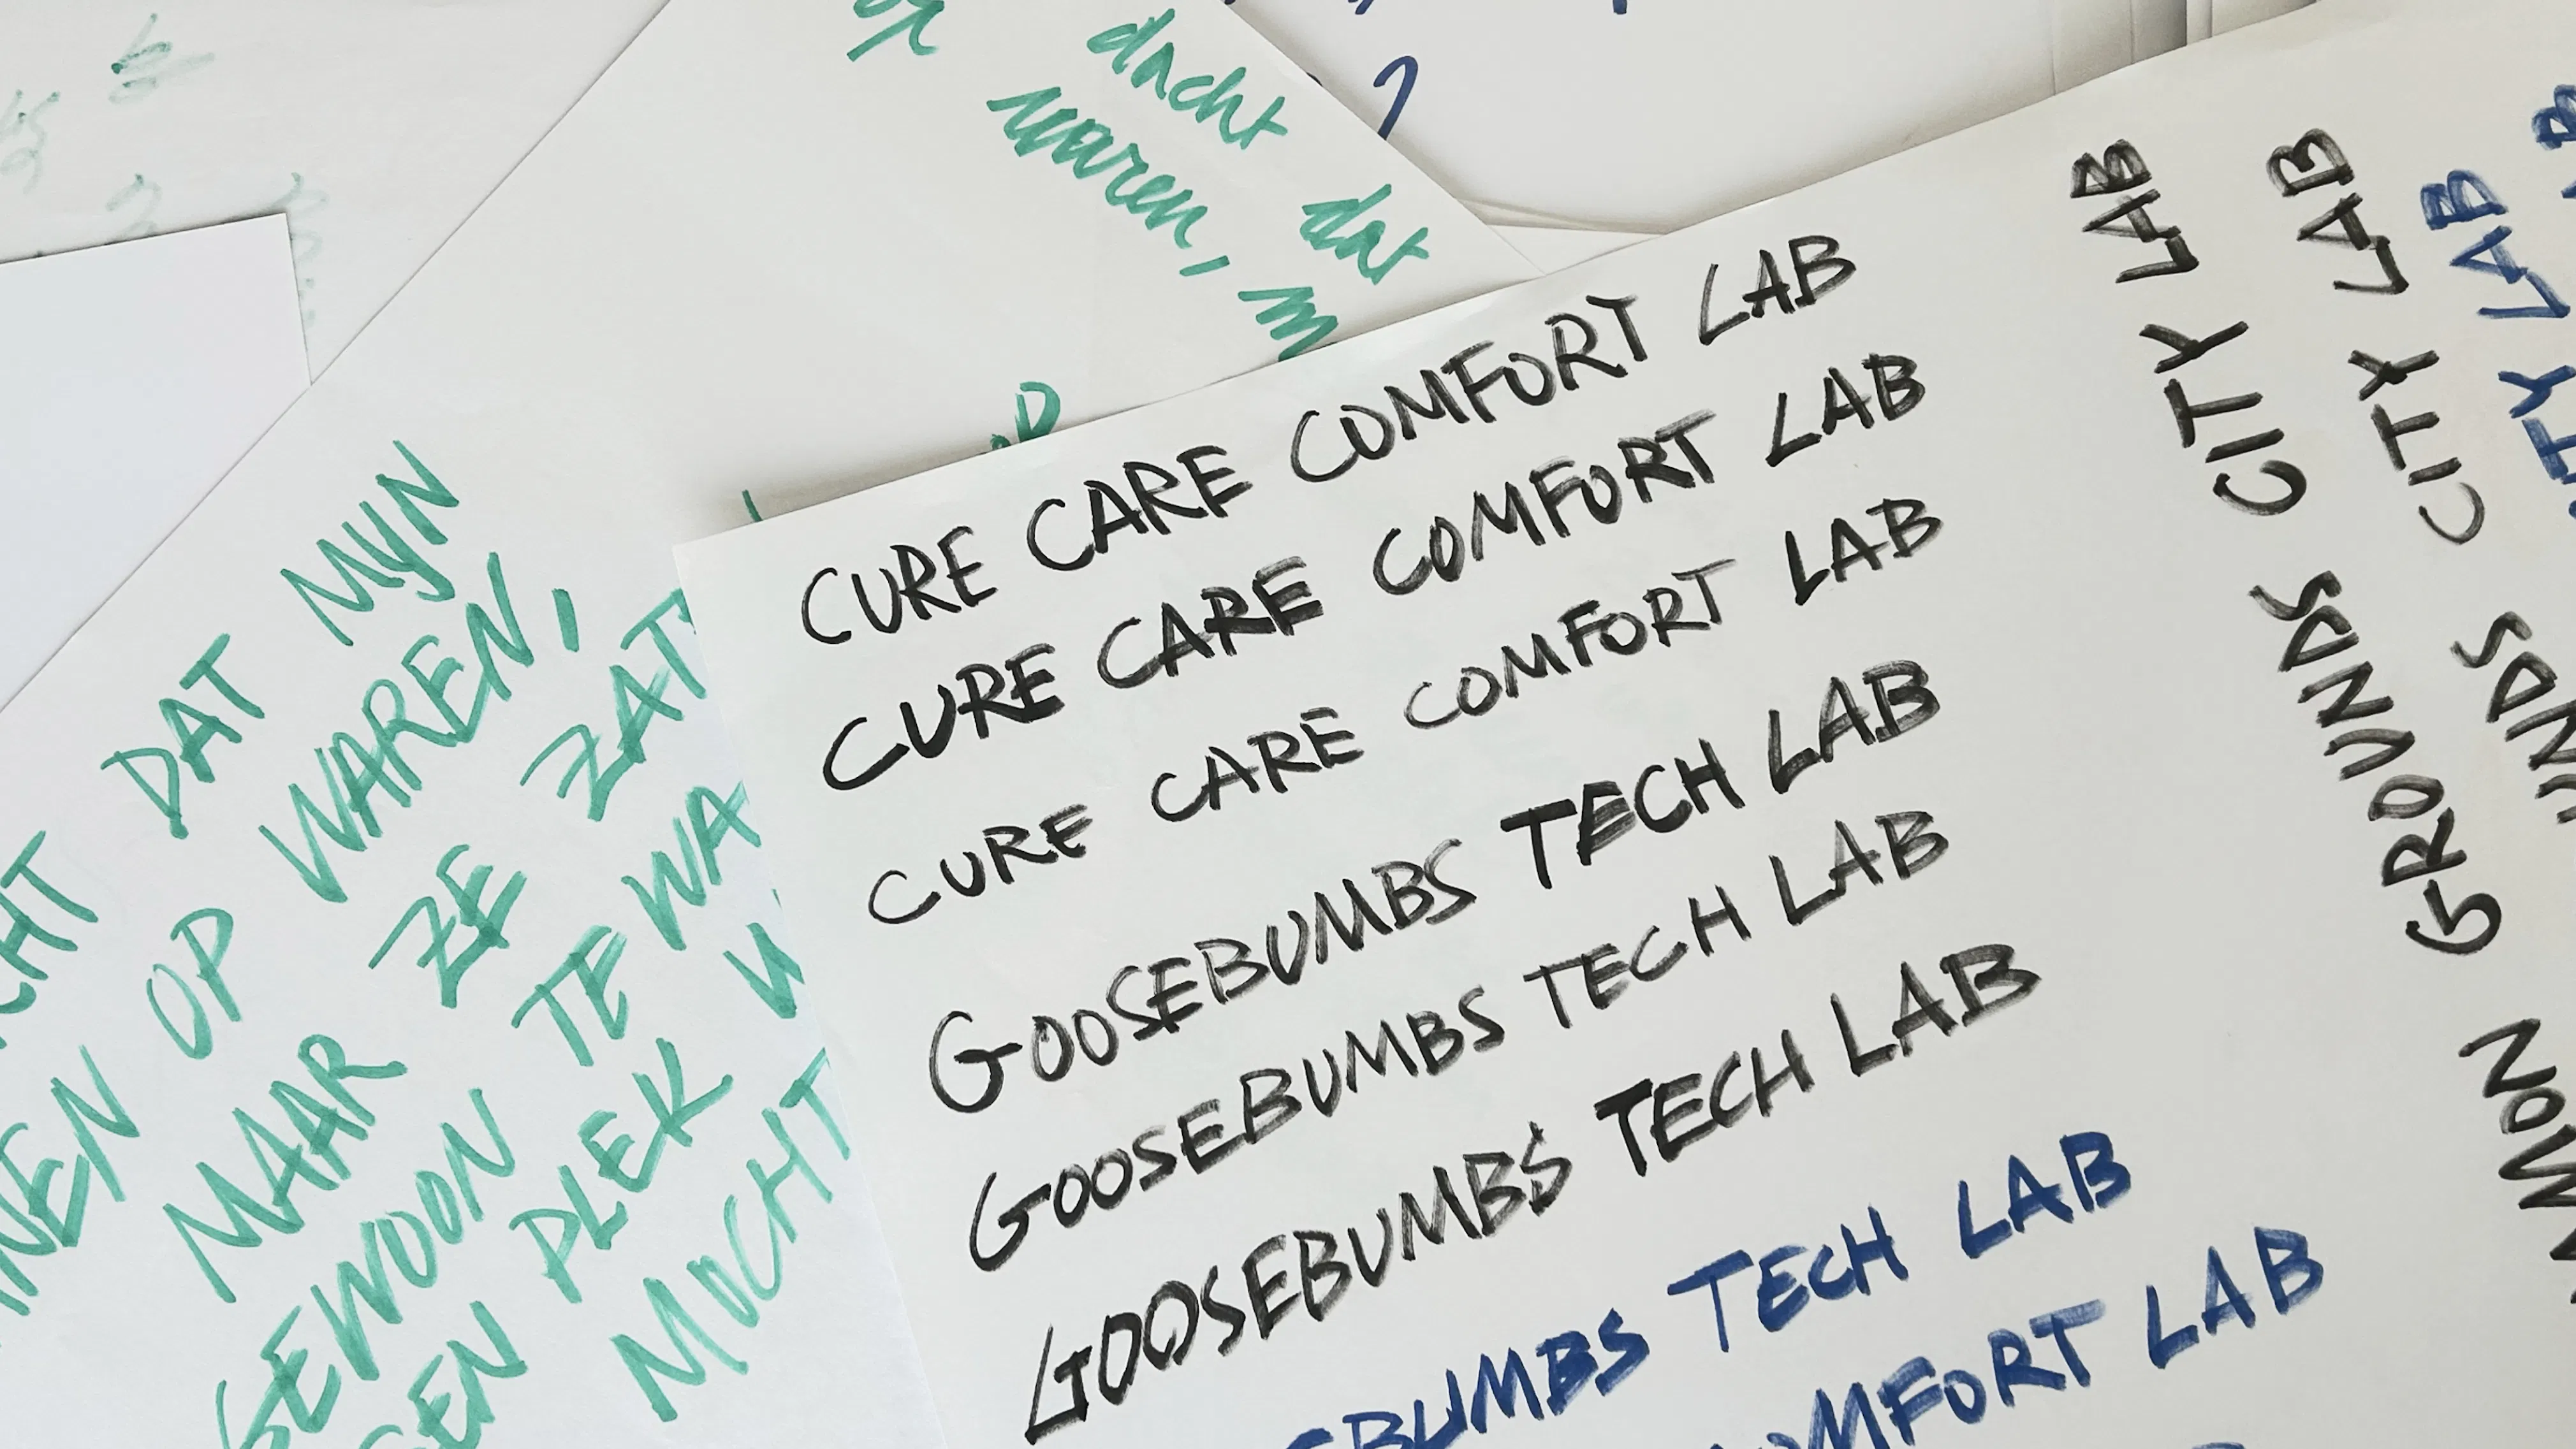 dacht dat
waren, m
DAT MYN
OP WAREN,
MAAR ZE ZAT
GEWOON TE WA
PLEK
MOCHT
CURE CARE COMFORT LAB
CURE CARE COMFORT LAB
CURE CARE COMFORT LAB
GOOSEBUMBS TECH LAB
GOOSEBUMBS TECH LAB
GOOSEBUMBS TECH LAB
EBUMBS TECH LAB
OMFORT LAB
MMON GROUNDS CITY LAB
UNDS CITY LAB
UNDS CITY LAB